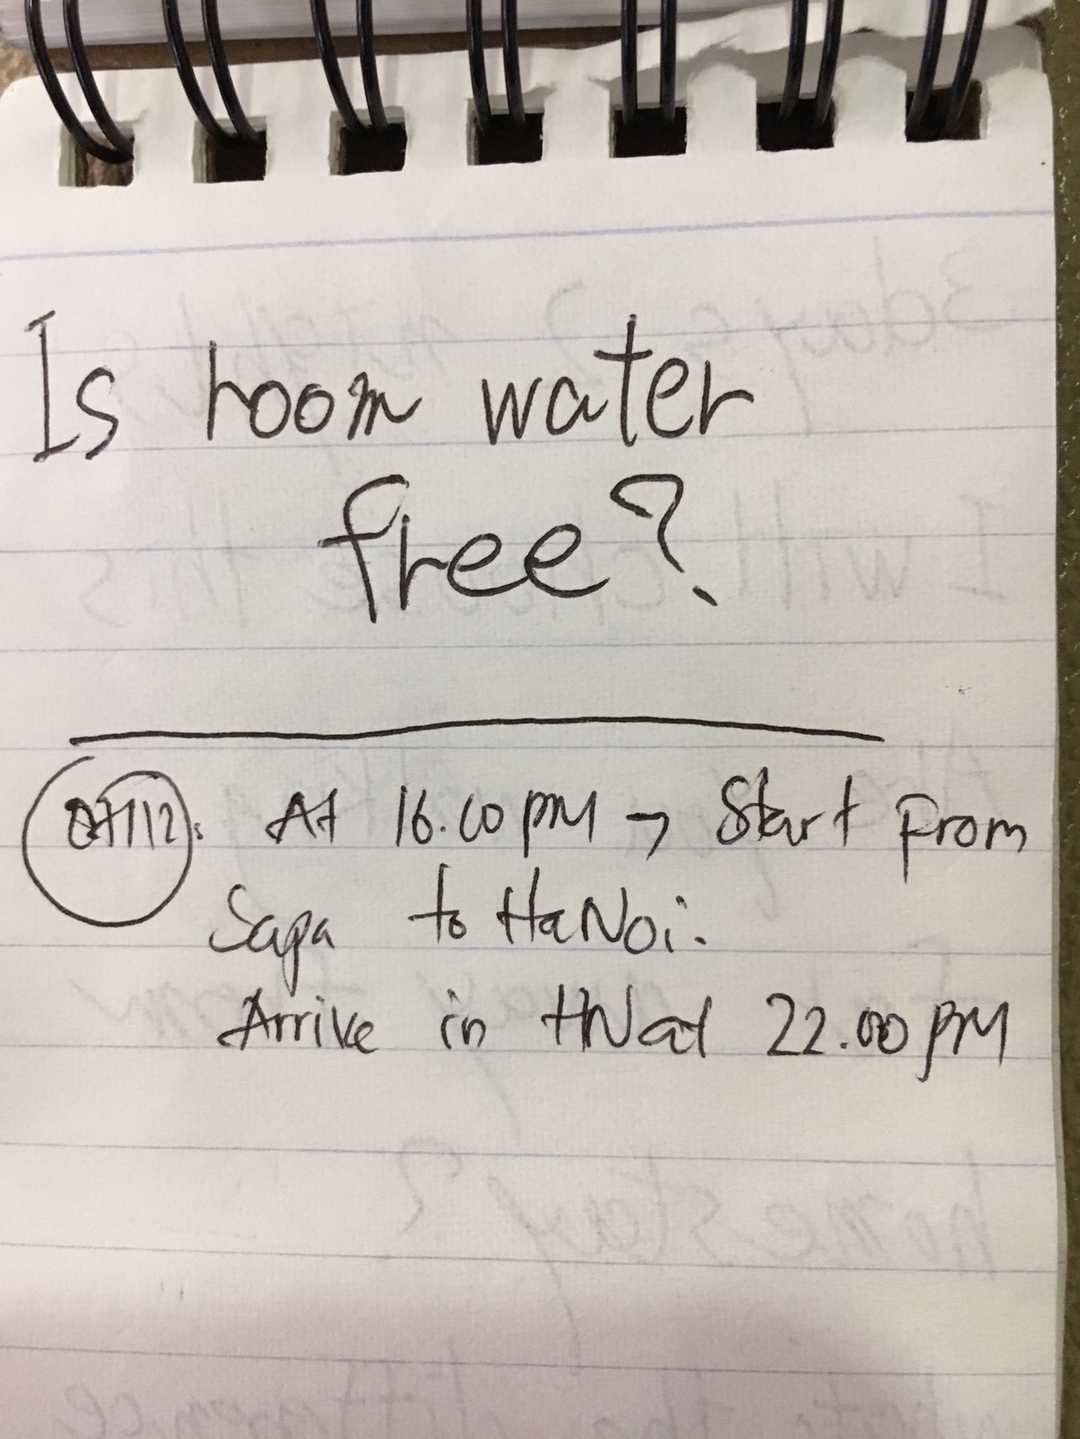 Is room water
free?
07/12: At 16.00 PM → Start From
Sapa to HaNoi.
Arrive in HN at 22.00 PM